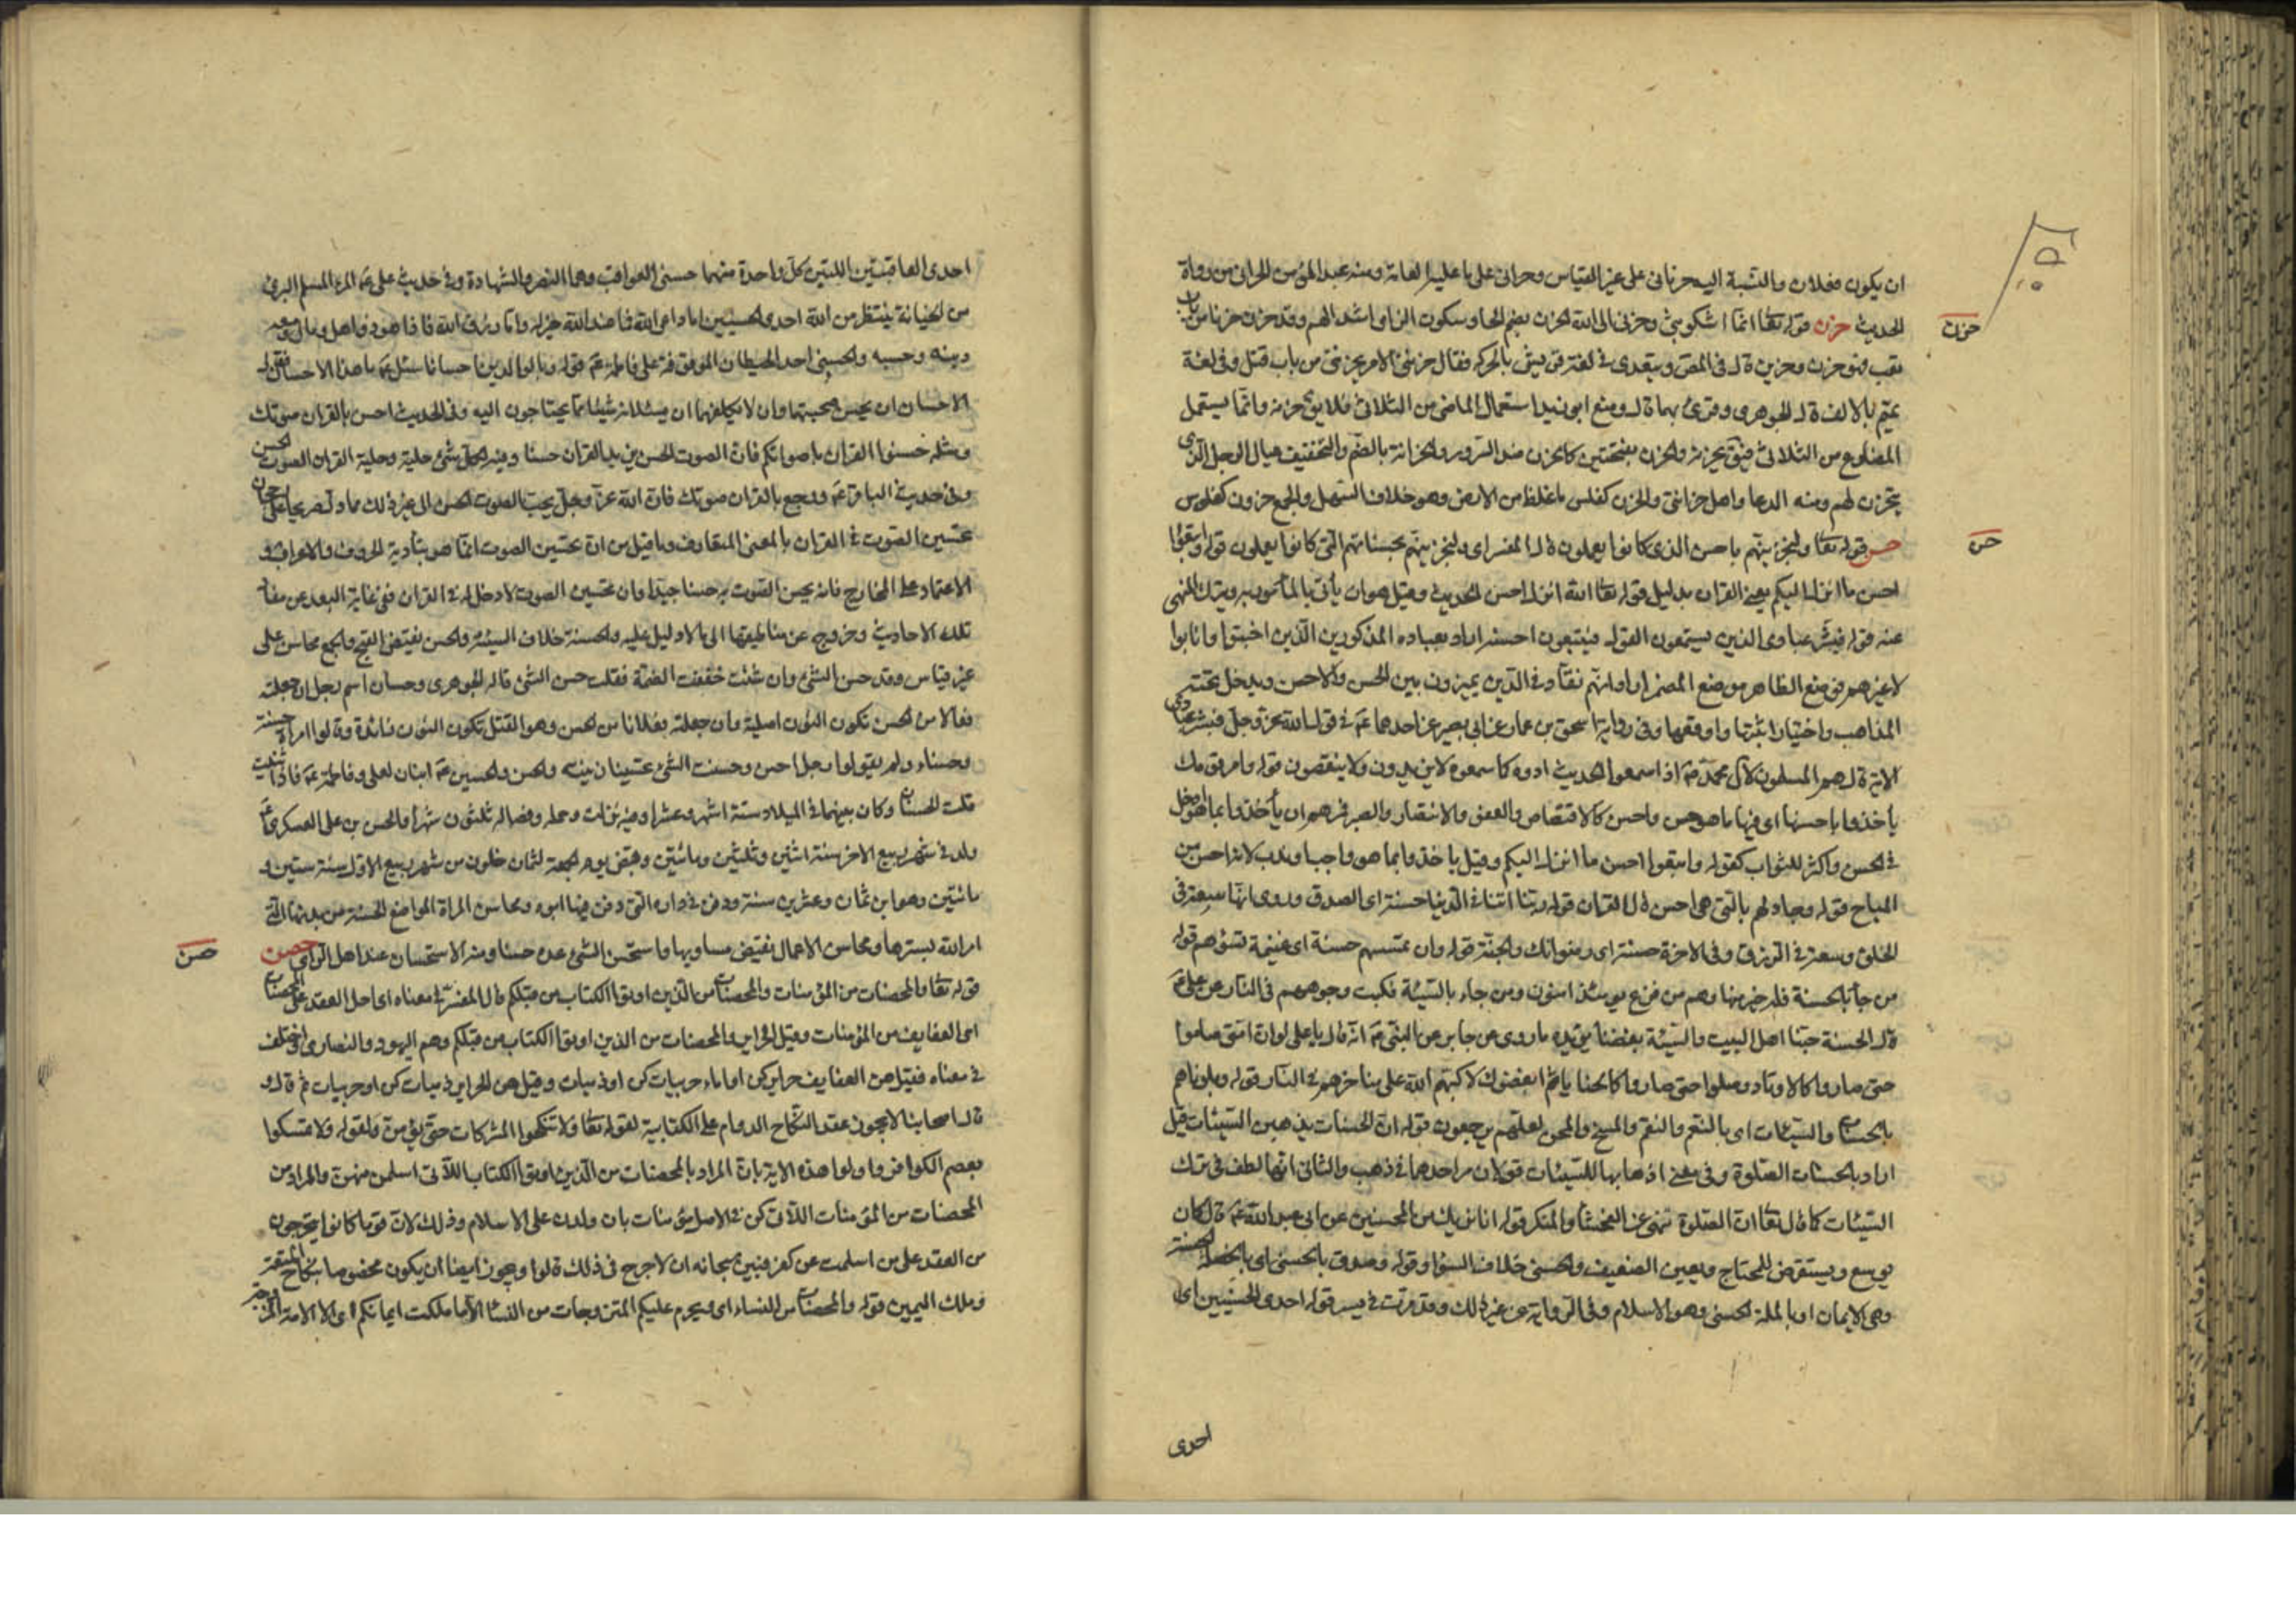 ان يكون فعلان والنسبة اليه حرنانى على غير القياس وحرانى على ما عليه العامة ومنه عبد المؤمن الحرانى من رواة
حزن
الحديث حزن قوله تعا انما اشكو بثى وحزنى الى الله الحزن بضم الحا وسكون الزاى اشد الهم وقد حزن حزنا من باب
تعب فهو حزن وحزين قال فى المص ويتعدى فى لغة قريش بالحركة فقال حزننى الامر يحزننى من باب قتل وفى لغة
تميم بالالف قال الجوهرى وقرئ بهما قال ومنع ابو زيد استعمال الماضى من الثلاثى فلا يق حزنه وانما يستعمل
المضارع من الثلاثى فيق يحزنه والحزن بفتحتين كالحزن ضد السرور والحزانة بالضم والتخفيف عيال الرجل الذى
يتحزن لهم ومنه الدعا واهل حزانتى والحزن كفلس ما غلظ من الارض وهو خلاف السهل والجمع حزون كفلوس
حسن
حسن قوله تعا ولنجزينهم باحسن الذى كانوا يعملون قال المفسر اى ولنجزينهم بحسناتهم التى كانوا يعملون قوله واتبعوا
احسن ما انزل اليكم يعنى القران بدليل قوله تعا الله انزل احسن الحديث وقيل هو ان يأتى بالمأمور به ويترك المنهى
عنه قوله فبشر عبادى الذين يستمعون القول فيتبعون احسنه اراد بعباده المذكورين الذين اخبتوا وانابوا
لا غيرهم فوضع الظاهر موضع المضمر اراد انهم نقاد فى الدين يميزون بين الحسن والاحسن ويدخل تحته
المذاهب واختيار اثبتها واوقعها وفى رواية اسحق بن عمار عن ابى بصير عن احدهما عم فى قول الله عز وجل فبشر عبادى
الاية قال هم المسلمون لآل محمد ص اذا سمعوا الحديث ادوه كما سمعوه لا يزيدون ولا ينقصون قوله وامر قومك
يأخذوا باحسنها اى فيها ما هو حسن واحسن كالاقتصاص والعفو والانتصار والصبر فمرهم ان يأخذوا بما هو ادخل
فى الحسن واكثر للثواب كقوله واتبعوا احسن ما انزل اليكم وقيل ياخذوا بما هو واجب او ندب لانه احسن من
المباح قوله وجادلهم بالتى هى احسن قال القران قوله ربنا اتنا فى الدنيا حسنة اى الصدق وروى انها سعة فى
الخلق وسعة فى الرزق وفى الاخرة حسنة اى رضوانك والجنة قوله وان تمسسهم حسنة اى غنيمة تسؤهم قوله
من جاء بالحسنة فله خير منها وهم من فزع يومئذ امنون ومن جاء بالسيئة فكبت وجوههم فى النار عن على ع
قال الحسنة حبنا اهل البيت والسيئة بغضنا يؤيده ما روى عن جابر عن النبى ص انه قال يا على لو ان امتى صاموا
حتى صاروا كالاوتاد وصلوا حتى صاروا كالحنايا ثم ابغضوك لاكبهم الله على مناخرهم فى النار قوله وبلوناهم
بالحسنات والسيئات اى بالنعم والنقم والمنح والمحن لعلهم يرجعون قوله ان الحسنات يذهبن السيئات قيل
اراد بالحسنات الصلوة وفى معنى اذهابها للسيئات قولان مر احدهما فى ذهب والثانى انها لطف فى ترك
السيئات كما قال تعا ان الصلوة تنهى عن الفحشا والمنكر قوله انا نريك من المحسنين عن ابى عبد الله ع قال كان
يوسع ويستقرض للمحتاج ويعين الضعيف والحسنى خلاف السوأى وقوله وصدق بالحسنى اى بالخصلة الحسنة
وهى الايمان او بالملة الحسنى وهو الاسلام وفى الرواية عن غير ذلك وقد مرت فى يسر قوله احدى الحسنيين اى
احدى
احدى العاقبتين اللتين كل واحدة منهما حسنى العواقب وهما النصر والشهادة وفى حديث على ع المرء المسلم البرئ
من الخيانة ينتظر من الله احدى الحسنيين اما داعى الله فما عند الله خير له واما رزق الله فاذا هو ذو اهل ومال ومعه
دينه وحسبه والحسنى احد الحيطان الموقوفة على فاطمة ع قوله وبالوالدين احسانا سئل ع ما هذا الاحسان فقال
الاحسان ان يحسن صحبتهما وان لا يكلفهما ان يسئلانه شيئا مما يحتاجون اليه وفى الحديث احسن بالقران صوتك
ومثله حسنوا القران باصواتكم فان الصوت الحسن يزيد القران حسنا وفيه لكل شئ حلية وحلية القران الصوت الحسن
وفى حديث الباقر ع ورجع بالقران صوتك فان الله عز وجل يحب الصوت الحسن الى غير ذلك مما دل صريحا على رجحان
تحسين الصوت فى القران بالمعنى المتعارف وما قيل من ان تحسين الصوت انما هو بتأدية الحروف والاعراب و
الاعتماد على المخارج فانه يحسن الصوت به حسنا جيدا وان تحسين الصوت لا دخل له فى القران ففى غاية البعد عن مفاد
تلك الاحاديث وخروج عن مناطيقها الى ما لا دليل عليه والحسنة خلاف السيئة والحسن نقيض القبح والجمع محاسن على
غير قياس وقد حسن الشئ وان شئت خففت الضمة فقلت حسن الشئ قاله الجوهرى وحسان اسم رجل ان جعلته
فعالا من الحسن تكون النون اصلية وان جعلته فعلانا من الحس وهو القتل تكون النون زائدة وقالوا امراة حسنة
وحسناء ولم يقولوا رجل احسن وحسنت الشئ تحسينا زينته والحسن والحسين ع ابنان لعلى وفاطمة ع فاذا ثنيت
قلت الحسنان وكان بينهما فى الميلاد ستة اشهر وعشرا وفيه نزلت وحمله وفصاله ثلثون شهرا والحسن بن على العسكرى ع
ولد فى شهر ربيع الاخر سنة اثنتين وثلثين ومائتين وقبض يوم الجمعة لثمان خلون من شهر ربيع الاول سنة ستين و
مائتين وهو ابن ثمان وعشرين سنة ودفن فى داره التى دفن فيها ابوه ومحاسن المراة المواضع الحسنة من بدنها التى
حصن
امر الله بسترها ومحاسن الاعمال نقيض مساويها واستحسن الشئ عده حسنا ومنه الاستحسان عند اهل الراى حصن
قوله تعا والمحصنات من المؤمنات والمحصنات من الذين اوتوا الكتاب من قبلكم قال المفسر فى معناه اى احل العقد على المحصنات
اى العفايف من المؤمنات وقيل الحراير والمحصنات من الذين اوتوا الكتاب من قبلكم وهم اليهود والنصارى واختلف
فى معناه فقيل هن العفايف حراير كن او اماء حربيات كن او ذميات وقيل هن الحراير ذميات كن او حربيات ثم قال و
قال اصحابنا لا يجوز عقد النكاح الدوام على الكتابية لقوله تعا ولا تنكحوا المشركات حتى يؤمن ولقوله ولا تمسكوا
بعصم الكوافر واولوا هذه الاية بان المراد بالمحصنات من الذين اوتوا الكتاب اللاتى اسلمن منهن والمراد من
المحصنات من المؤمنات اللاتى كن فى الاصل مؤمنات بان ولدن على الاسلام وذلك لان قوما كانوا يتحرجون
من العقد على من اسلمت عن كفر فبين سبحانه ان لا حرج فى ذلك قالوا ويجوز ايضا ان يكون مخصوصا بنكاح المتعة
وملك اليمين قوله والمحصنات من النساء اى ويحرم عليكم المتزوجات من النسا الا ما ملكت ايمانكم اى الا الامة المزوجة